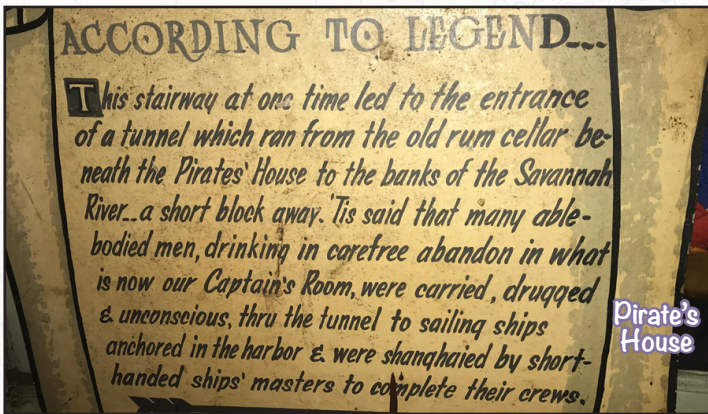 ACCORDING TO LEGEND...
This stairway at one time led to the entrance
of a tunnel which ran from the old rum cellar be-
neath the Pirates' House to the banks of the Savannah
River...a short block away. 'Tis said that many able-
bodied men, drinking in carefree abandon in what
is now our Captain's Room, were carried, drugged
& unconscious, thru the tunnel to sailing ships
anchored in the harbor & were shanghaied by short-
handed ships' masters to complete their crews.
Pirate's
House